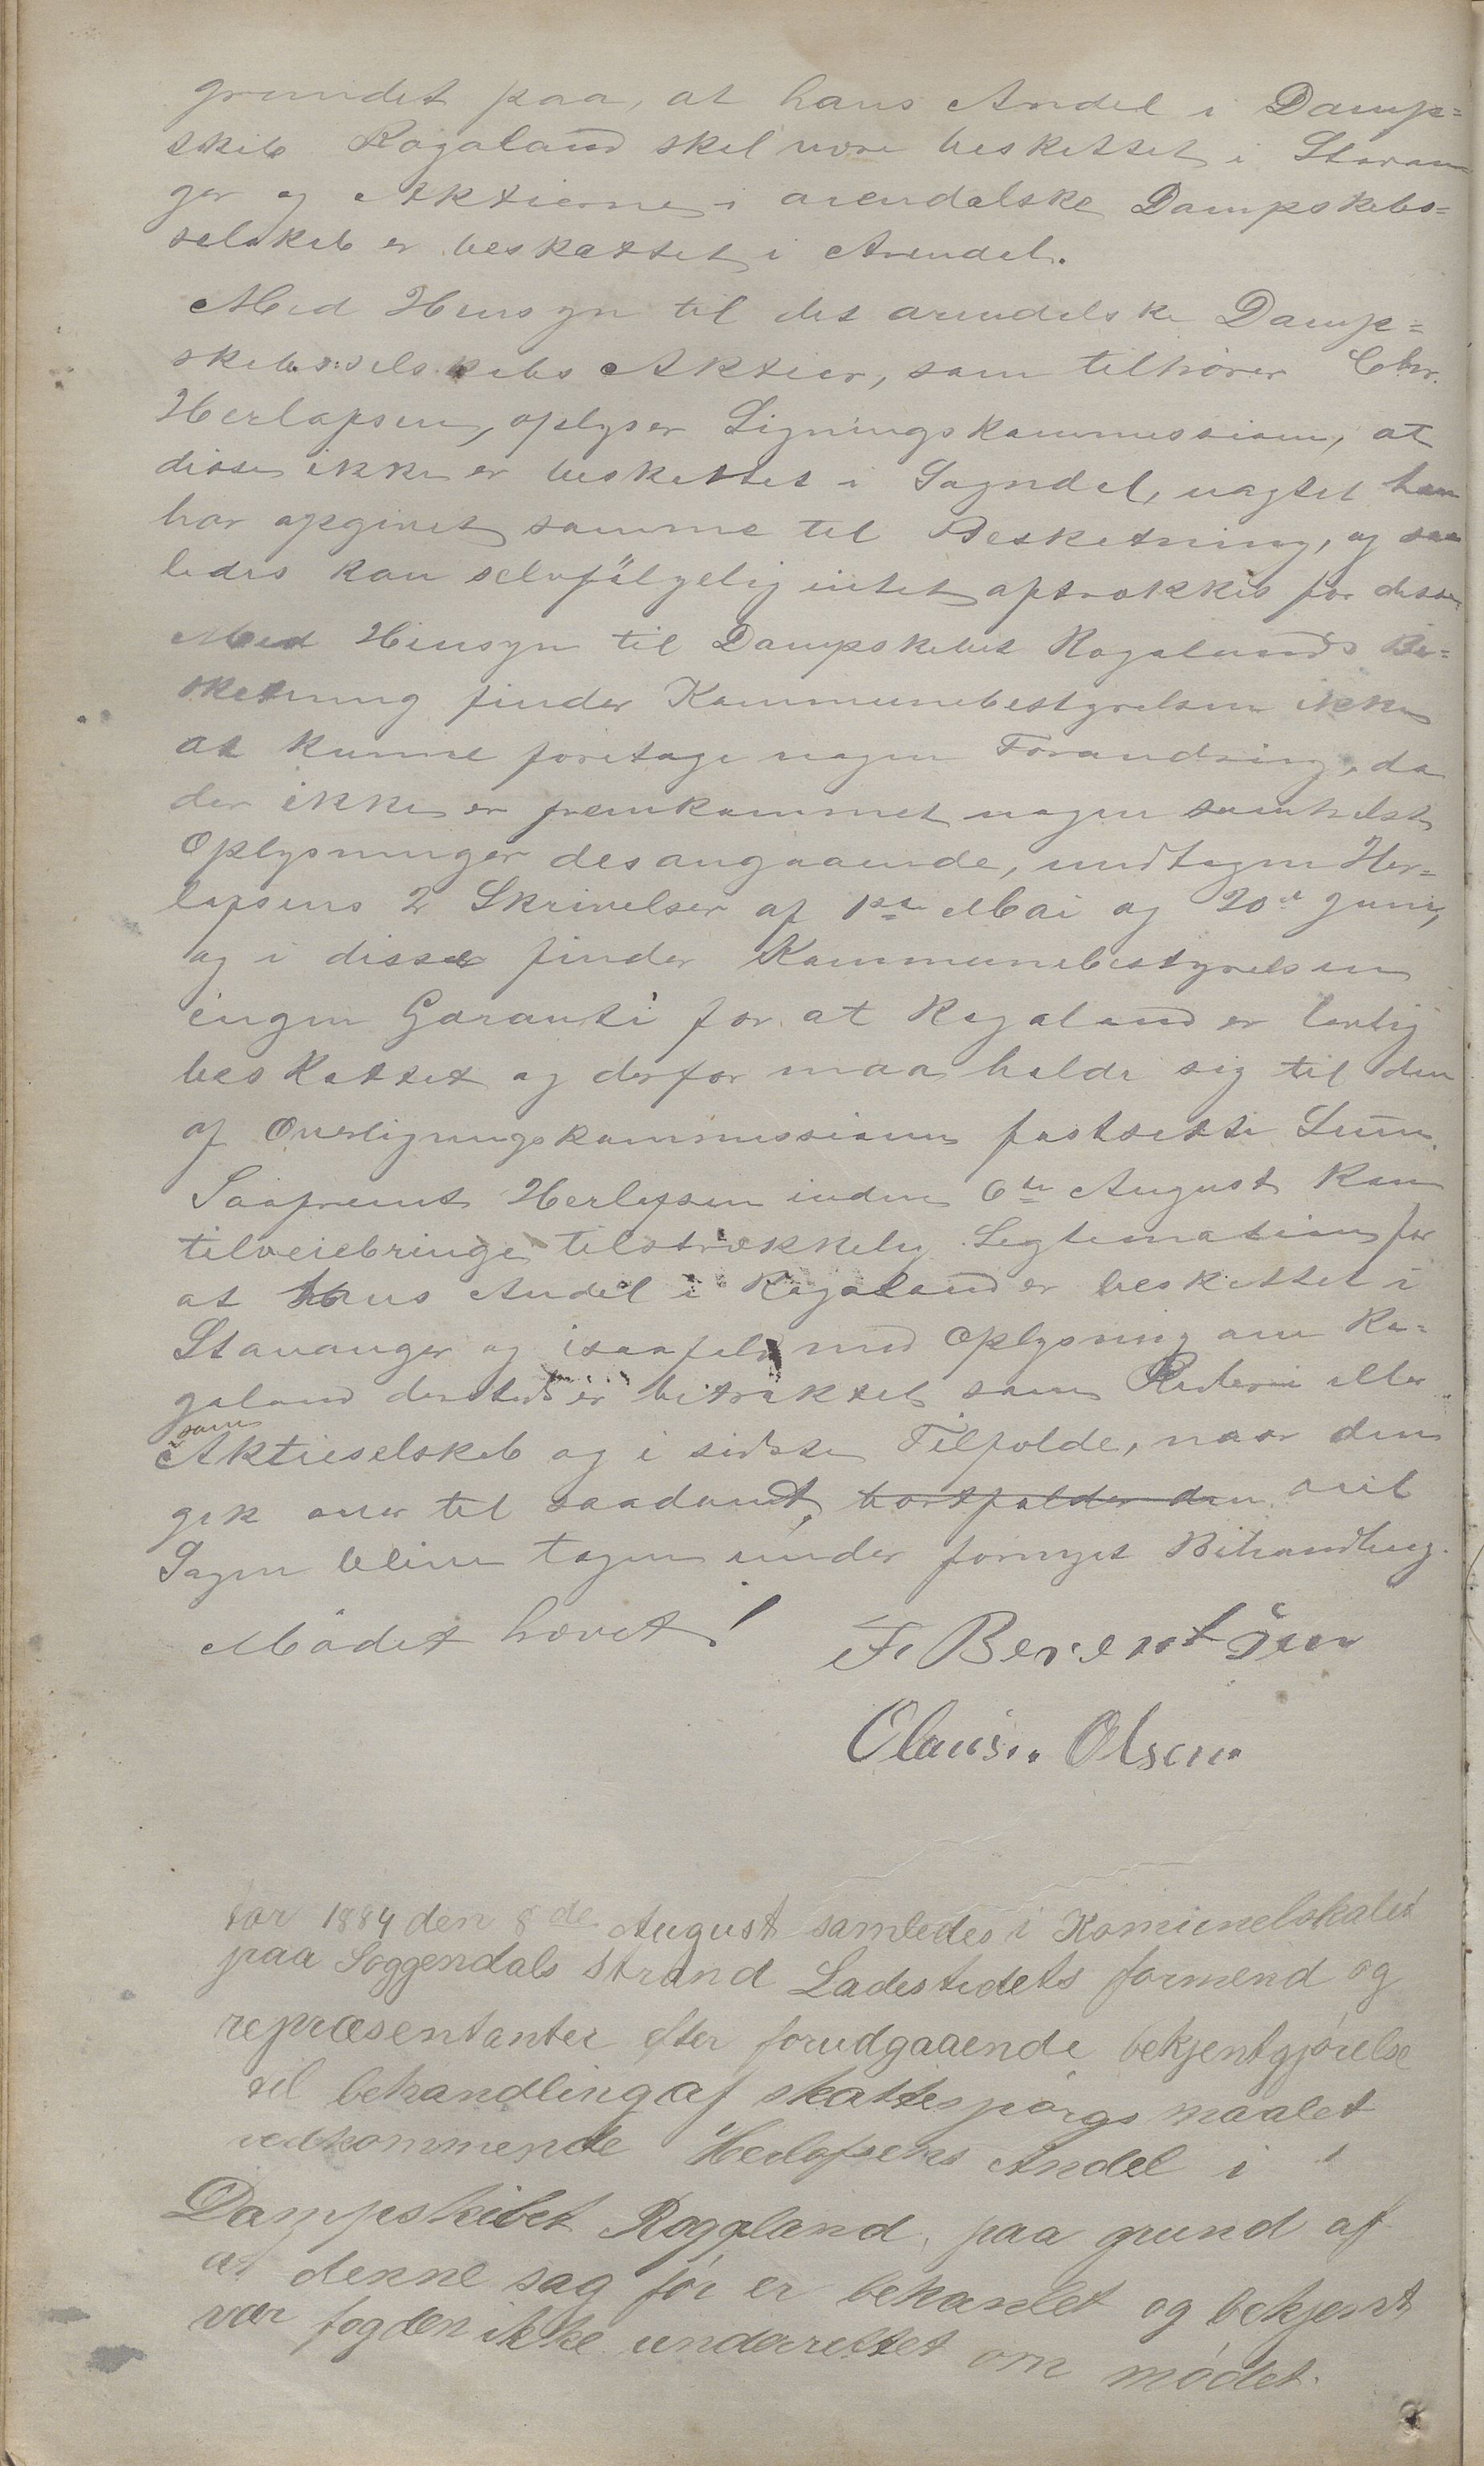 grundet paa, at hans Andel i Damp=
skib Rogaland skal være beskattet i Stavan
ger og Aktierne i arendalske Dampskibs=
selskab er beskattet i Arendal.
Med Hensyn til det arendalske Damp=
skibsselskabs Aktier, som tilhører Chr.
Herlofsen, oplyser Ligningskommissionen, at
disse ikke er beskattet i Sogndal, uagtet han
har opgivet samme til Beskatning, og saa
ledes kan selvfölgelig intet aftrækkes for disse
Med Hensyn til Dampskibet Rogalands Be=
skatning finder Kommunebestyrelsen ikke
at kunne foretage nogen Forandring, da
der ikke er fremkommet nogen somhelst
Oplysninger desangaaende, undtagen Her=
lofsens 2 Skrivelser af 1ste Mai og 20de Juni,
og i disse finder Kommunebestyrelsen
ingen Garanti for at Rogaland er lovlig
beskattet og derfor maa holde sig til den
af Overligningskommissionen fastsatte Sum.
Saafremt Herlofsen inden 6te August kan
tilveiebringe tilstrækkelig Legtimation for
at hans Andel i Rogaland er beskattet i
Stavanger og isaafald med Oplysning om Ro=
galand dersteds er betraktet som Rederi eller
som
Aktieselskab og i sidste Tilfælde, naar den
gik over til saadant, bortfalder den vil
Sagen blive tagen under fornyet Behandling.
Mödet hævet!
F. Berentsen
Claus. Olsen.
Aar 1884 den 8de August samledes i Komunelokalet
paa Soggendals strand Ladestedets formend og
repræsentanter efter forudgaaende bekjentgjörelse
til behandling af skattespörgsmaalet
vedkommende Herlofsens Andel i
Dampskibet Rogaland, paa grund af
at denne sag för er behanlet og bekjent
var fogden ikke underrettet om mödet.